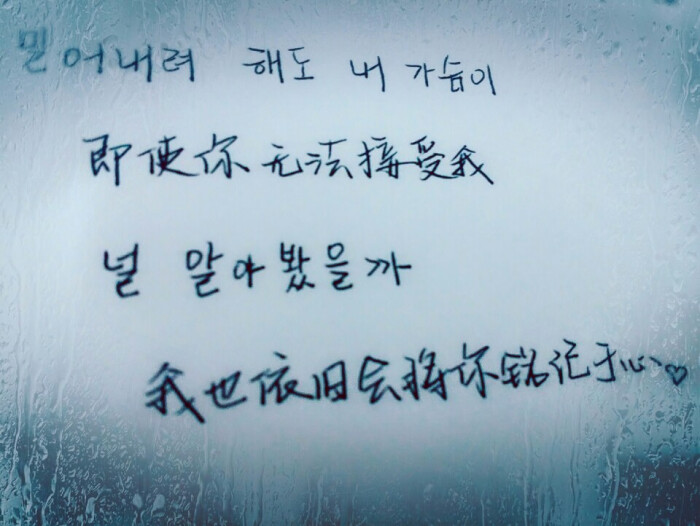 밀어내려 해도 내 가슴이
即使你无法接受我
널 알아봤을까
我也依旧会将你铭记于心♡